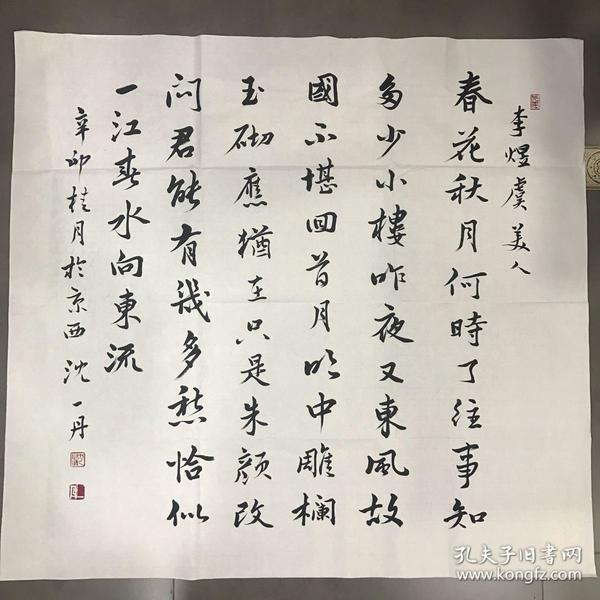 李煜虞美人
春花秋月何時了往事知
多少小樓昨夜又東風故
國不堪回首月明中雕欄
玉砌應猶在只是朱顏改
问君能有幾多愁恰似
一江春水向東流
辛卯桂月於京西沈一丹
孔夫子旧书网
www.kongfz.com